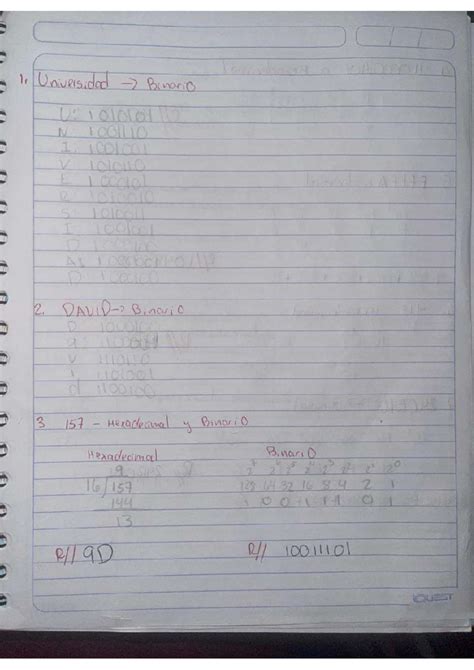 1. Universidad → Binario
U: 1010101
N: 1001110
I: 1001001
V: 1010110
E: 1000101
R: 1010010
S: 1010011
I: 1001001
D: 1000100
A: 1000001
D: 1000100
2. DAVID → Binario
D 1000100
a: 1100001
v 1110110
i 1101001
d 1100100
3 157 - Hexadecimal y Binario
Hexadecimal Binario
9 2⁷ 2⁶ 2⁵ 2⁴ 2³ 2² 2¹ 2⁰
16 157 128 64 32 16 8 4 2 1
144 1 0 0 1 1 1 0 1
13
R// 9D R// 10011101
QUEST